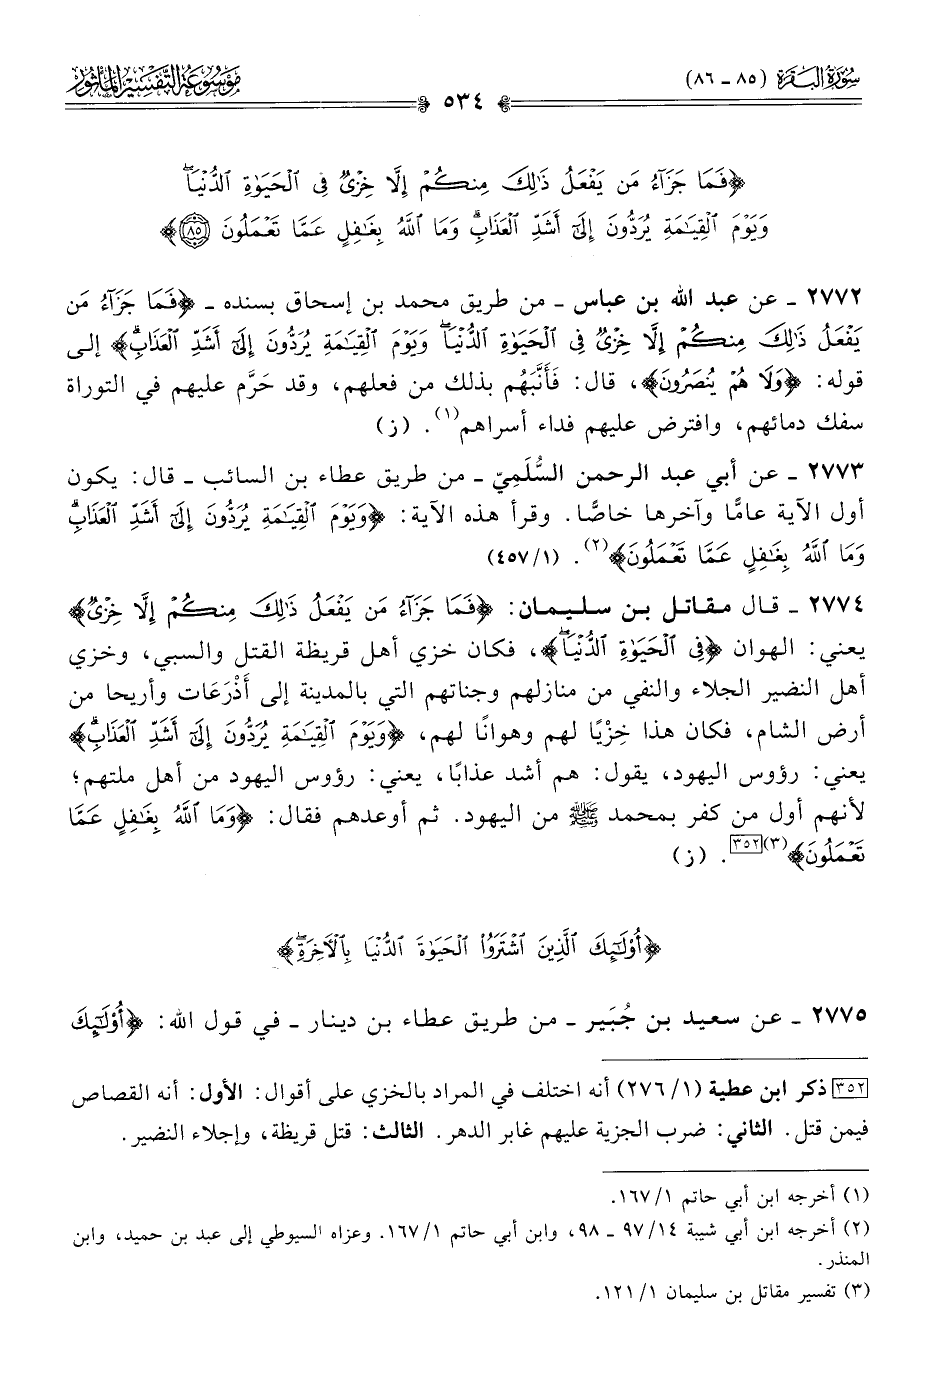 سُورَةُ البَقَرَة (٨٥ - ٨٦)
مَوْسُوعَةُ التَّفْسِيرِ المَأْثُور
٥٣٤
﴿فَمَا جَزَآءُ مَن يَفْعَلُ ذَٰلِكَ مِنكُمْ إِلَّا خِزْىٌ فِى ٱلْحَيَوٰةِ ٱلدُّنْيَاۖ
وَيَوْمَ ٱلْقِيَـٰمَةِ يُرَدُّونَ إِلَىٰٓ أَشَدِّ ٱلْعَذَابِۗ وَمَا ٱللَّهُ بِغَـٰفِلٍ عَمَّا تَعْمَلُونَ ٨٥﴾
٢٧٧٢ - عن عبد الله بن عباس - من طريق محمد بن إسحاق بسنده - ﴿فَمَا جَزَآءُ مَن
يَفْعَلُ ذَٰلِكَ مِنكُمْ إِلَّا خِزْىٌ فِى ٱلْحَيَوٰةِ ٱلدُّنْيَاۖ وَيَوْمَ ٱلْقِيَـٰمَةِ يُرَدُّونَ إِلَىٰٓ أَشَدِّ ٱلْعَذَابِۗ﴾ إلى
قوله: ﴿وَلَا هُمْ يُنصَرُونَ﴾، قال: فَأَنَّبَهُم بذلك من فعلهم، وقد حَرَّم عليهم في التوراة
سفك دمائهم، وافترض عليهم فداء أسراهم(١). (ز)
٢٧٧٣ - عن أبي عبد الرحمن السُّلَمِيّ - من طريق عطاء بن السائب - قال: يكون
أول الآية عامًّا وآخرها خاصًّا. وقرأ هذه الآية: ﴿وَيَوْمَ ٱلْقِيَـٰمَةِ يُرَدُّونَ إِلَىٰٓ أَشَدِّ ٱلْعَذَابِۗ
وَمَا ٱللَّهُ بِغَـٰفِلٍ عَمَّا تَعْمَلُونَ﴾(٢). (٤٥٧/١)
٢٧٧٤ - قال مقاتل بن سليمان: ﴿فَمَا جَزَآءُ مَن يَفْعَلُ ذَٰلِكَ مِنكُمْ إِلَّا خِزْىٌ﴾
يعني: الهوان ﴿فِى ٱلْحَيَوٰةِ ٱلدُّنْيَاۖ﴾، فكان خزي أهل قريظة القتل والسبي، وخزي
أهل النضير الجلاء والنفي من منازلهم وجناتهم التي بالمدينة إلى أَذْرَعَات وأريحا من
أرض الشام، فكان هذا خِزْيًا لهم وهوانًا لهم، ﴿وَيَوْمَ ٱلْقِيَـٰمَةِ يُرَدُّونَ إِلَىٰٓ أَشَدِّ ٱلْعَذَابِۗ﴾
يعني: رؤوس اليهود، يقول: هم أشد عذابًا، يعني: رؤوس اليهود من أهل ملتهم؛
لأنهم أول من كفر بمحمد ﷺ من اليهود. ثم أوعدهم فقال: ﴿وَمَا ٱللَّهُ بِغَـٰفِلٍ عَمَّا
تَعْمَلُونَ﴾(٣)[٣٥٢]. (ز)
﴿أُو۟لَـٰٓئِكَ ٱلَّذِينَ ٱشْتَرَوُا۟ ٱلْحَيَوٰةَ ٱلدُّنْيَا بِٱلْـَٔاخِرَةِۖ﴾
٢٧٧٥ - عن سعيد بن جُبَير - من طريق عطاء بن دينار - في قول الله: ﴿أُو۟لَـٰٓئِكَ
[٣٥٢] ذكر ابن عطية (١/ ٢٧٦) أنه اختلف في المراد بالخزي على أقوال: الأول: أنه القصاص
فيمن قتل. الثاني: ضرب الجزية عليهم غابر الدهر. الثالث: قتل قريظة، وإجلاء النضير.
(١) أخرجه ابن أبي حاتم ١/ ١٦٧.
(٢) أخرجه ابن أبي شيبة ١٤/ ٩٧ - ٩٨، وابن أبي حاتم ١/ ١٦٧. وعزاه السيوطي إلى عبد بن حميد، وابن
المنذر.
(٣) تفسير مقاتل بن سليمان ١/ ١٢١.